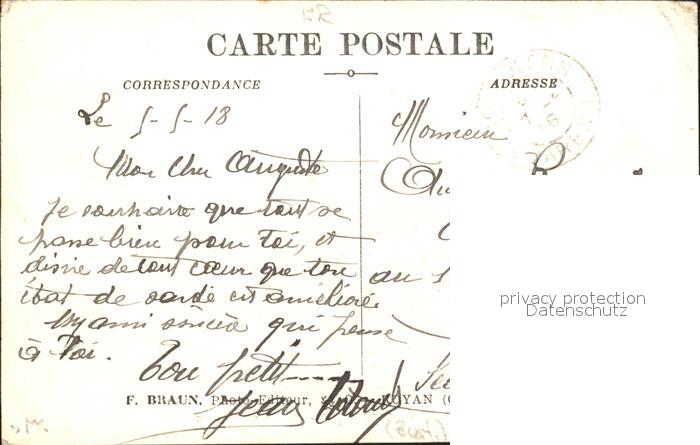 CARTE POSTALE
CORRESPONDANCE
ADRESSE
Le 5-5-18
Monsieur
Mon cher Auguste
Je souhaite que tout se
passe bien pour toi, et
désire de tout cœur que ton
état de santé est améliorée
ami sincère qui pense
à Toi.
au
Ton petit
F. BRAUN, Photo-Editeur, ROYAN
Jean
privacy protection
Datenschutz